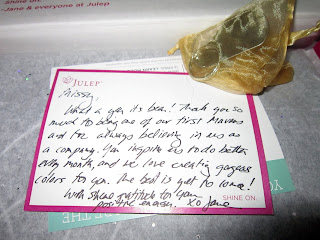 Shine on.
-Jane & everyone at Julep
JULEP
Missy,
What a year its been! Thank you so
much to being one of our first Mavens
and for always believing in us as
a company. You inspire us to do better
every month, and we love creating gorgeous
colors for you. The best is yet to come!
With sincere gratitude for your
positive energy. xo Jane
SHINE ON.